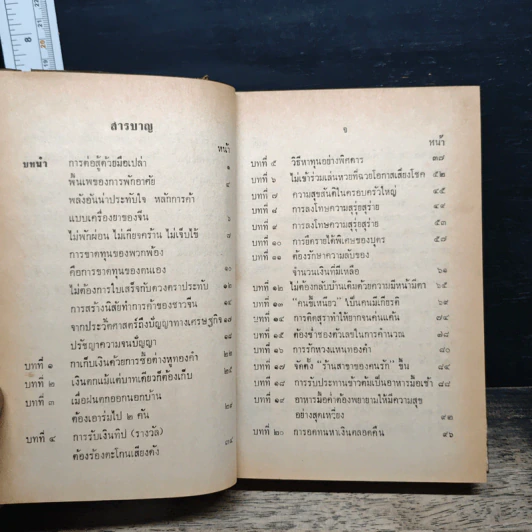 สารบาญ
หน้า
บทนำ การต่อสู้ด้วยมือเปล่า ๑
พื้นเพของการพักอาศัย ๔
พลังอันน่าประทับใจ หลักการค้า
แบบเครื่องยาของจีน ๖
ไม่พักผ่อน ไม่เกียจคร้าน ไม่เจ็บไข้ ๗
การขาดทุนของพวกพ้อง
คือการขาดทุนของตนเอง ๑๐
ไม่ต้องการใบเสร็จกับดวงตราประทับ ๑๒
การสร้างนิสัยทำการค้าของชาวจีน ๑๔
จากประวัติศาสตร์ถึงปัญญาทางเศรษฐกิจ
ปรัชญาความจนปัญญา
บทที่ ๑ กาเก็บเงินด้วยการซื้อต่างหูทองคำ ๒๒
บทที่ ๒ เงินตกแม้แต่บาทเดียวก็ต้องเก็บ ๒๕
บทที่ ๓ เมื่อฝนตกออกนอกบ้าน
ต้องเอาร่มไป ๒ คัน ๒๙
บทที่ ๔ การรับเงินทิป (รางวัล)
ต้องร้องตะโกนเสียงดัง ๓๔
ข
หน้า
บทที่ ๕ วิธีหาทุนอย่างพิศดาร ๓๗
บทที่ ๖ ไม่เข้าร่วมเล่นหวยที่ฉวยโอกาสเสี่ยงโชค ๔๒
บทที่ ๗ ความสุขสันต์ในครอบครัวใหญ่ ๔๕
บทที่ ๘ การลงโทษความสุรุ่ยสุร่าย ๔๙
บทที่ ๙ การลงโทษความสุรุ่ยสุร่าย ๕๓
บทที่ ๑๐ การยึดรายได้พิเศษของบุตร ๕๗
บทที่ ๑๑ ต้องรักษาความลับของ
จำนวนเงินที่มีเหลือ ๖๑
บทที่ ๑๒ ไม่ต้องกลับบ้านเดิมด้วยความมีหน้ามีตา ๖๕
บทที่ ๑๓ "คนขี้เหนียว" เป็นคนมีเกียรติ ๖๘
บทที่ ๑๔ การติดสุราทำให้ยากจนค้นแค้น ๗๔
บทที่ ๑๕ ต้องช่ำชองตัวเลขในการคำนวณ ๗๗
บทที่ ๑๖ การรักหวงแหนทองคำ ๘๐
บทที่ ๑๗ จัดตั้ง "ร้านสาขาของคนรัก" ขึ้น ๘๔
บทที่ ๑๘ การรับประทานข้าวต้มเป็นอาหารมื้อเช้า ๘๘
บทที่ ๑๙ อาหารมื้อค่ำต้องพยายามให้มีความสุข
อย่างสุดเหวี่ยง ๙๒
บทที่ ๒๐ การอดทนหาเงินตลอดคืน ๙๖